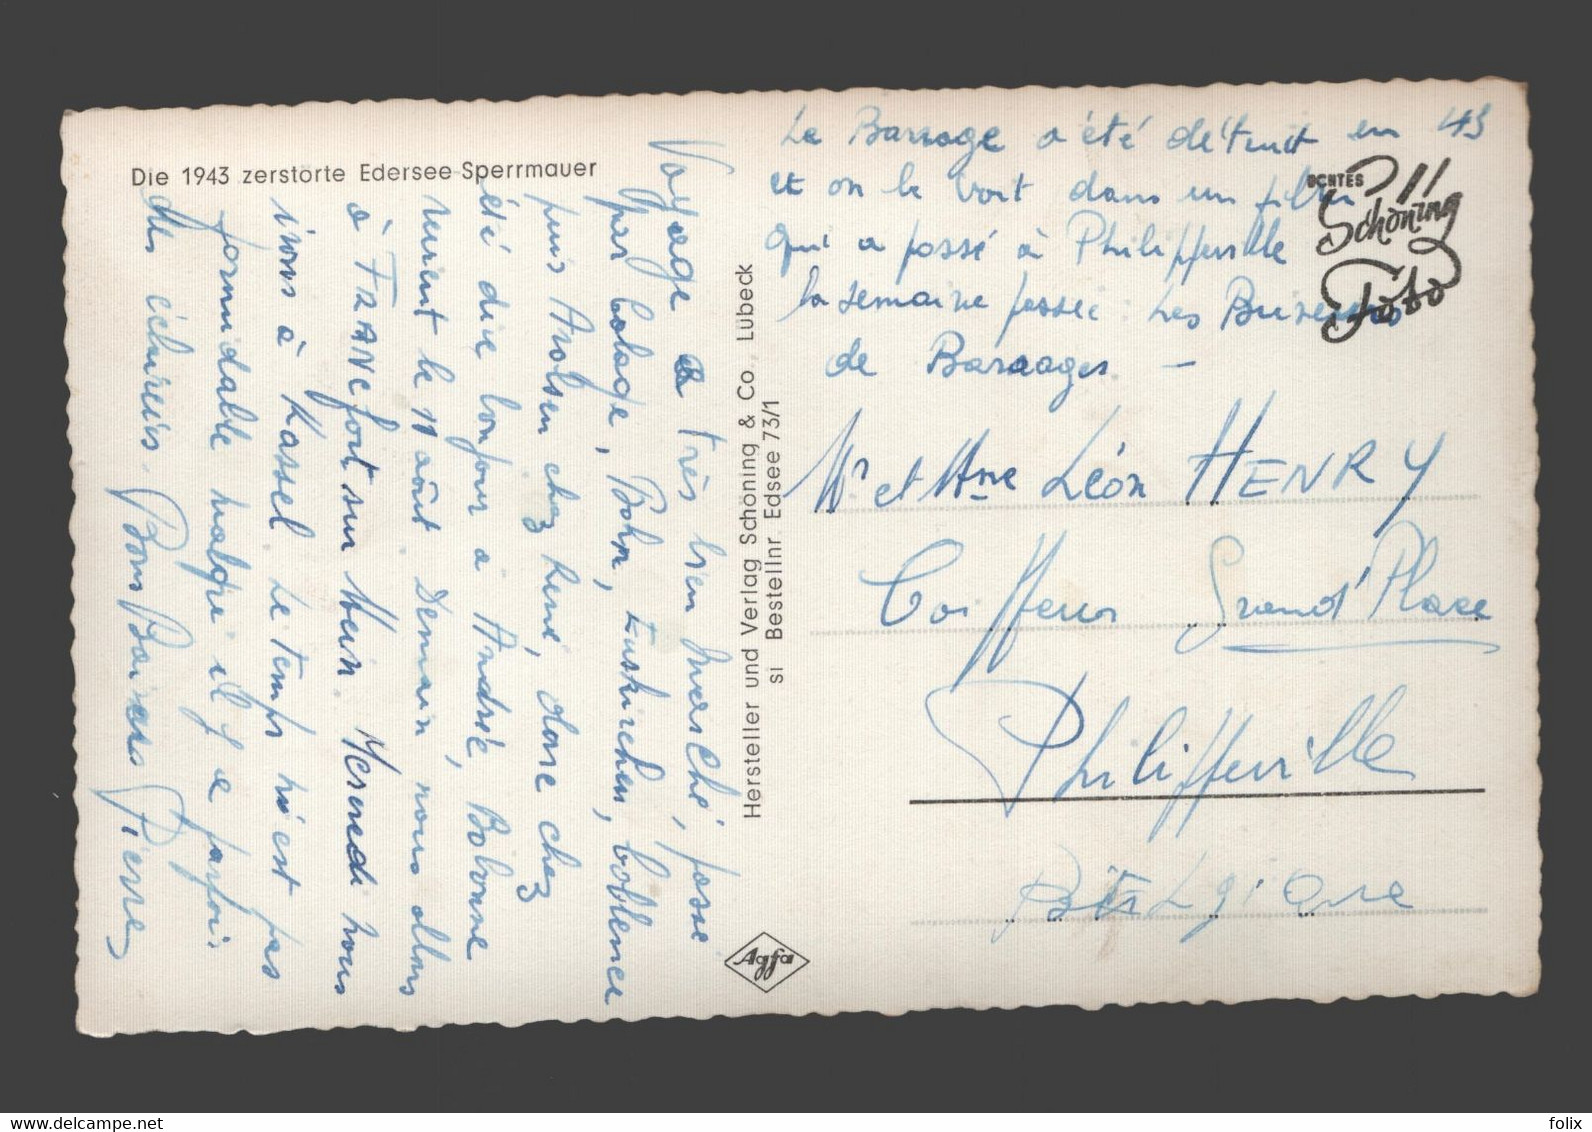 Die 1943 zerstörte Edersee-Sperrmauer
Voyage a très bien marché, passé
par Cologne, Bohn, Euskirchen, Coblence
puis Arolsen chez René, dose chez
été dire bonjour a Andrée, Bobonne
le 11 août Demain nous allons
à FRANCfort sur Mein. Mercredi nous
irons à Kassel Le temps n'est pas
formidable malgré il y a parfois
des éclaircis. Bons Baisers Pierre
Hersteller und Verlag Schöning & Co., Lübeck
si Bestellnr. Edsee 73/1
Agfa
Le Barrage a été détruit en 43
et on le voit dans un film
qui a passé à Philippeville
la semaine passée Les Briseurs
de Barrages. —
ECHTES
Schöning
Foto
Mr et Mme Léon HENRY
Coiffeur Grand'Place
Philippeville
BELgique
felix
www.delcampe.net